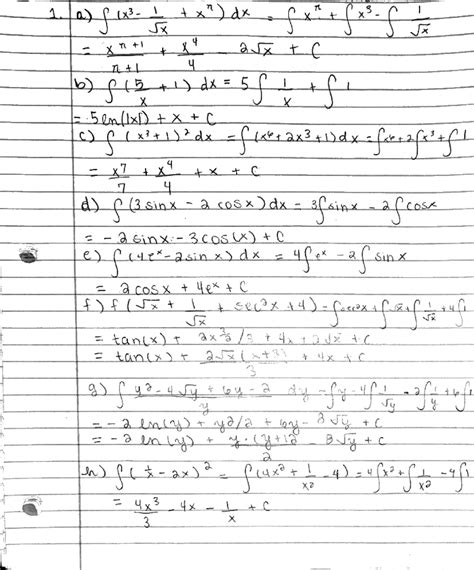 1. a) ∫(x³ - 1/√x + xⁿ) dx = ∫xⁿ + ∫x³ - ∫1/√x
= xⁿ⁺¹/n+1 + x⁴/4 - 2√x + C
b) ∫(5/x + 1) dx = 5∫1/x + ∫1
= 5 ln(|x|) + x + C
c) ∫(x³+1)² dx = ∫(x⁶+2x³+1)dx = ∫x⁶+2∫x³+∫1
= x⁷/7 + x⁴/4 + x + C
d) ∫(3sinx - 2cosx)dx = 3∫sinx - 2∫cosx
= -2sinx - 3cos(x) + C
e) ∫(4eˣ - 2sinx) dx = 4∫eˣ - 2∫sinx
= 2cosx + 4eˣ + C
f) ∫(√x + 1/√x + sec²x + 4) = ∫sec²x + ∫√x + ∫1/√x + 4∫1
= tan(x) + 2x^3/2/3 + 4x + 2√x + C
= tan(x) + 2√x(x+3)/3 + 4x + C
g) ∫ y²-4√y+6y-2/y dy = ∫y - 4∫1/√y - 2∫1/y + 6∫1
= -2 ln(y) + y²/2 + 6y - 8√y + C
= -2 ln(y) + y·(y+12)/2 - 8√y + C
h) ∫(1/x - 2x)² = ∫(4x² + 1/x² - 4) = 4∫x² + ∫1/x² - 4∫1
= 4x³/3 - 4x - 1/x + C